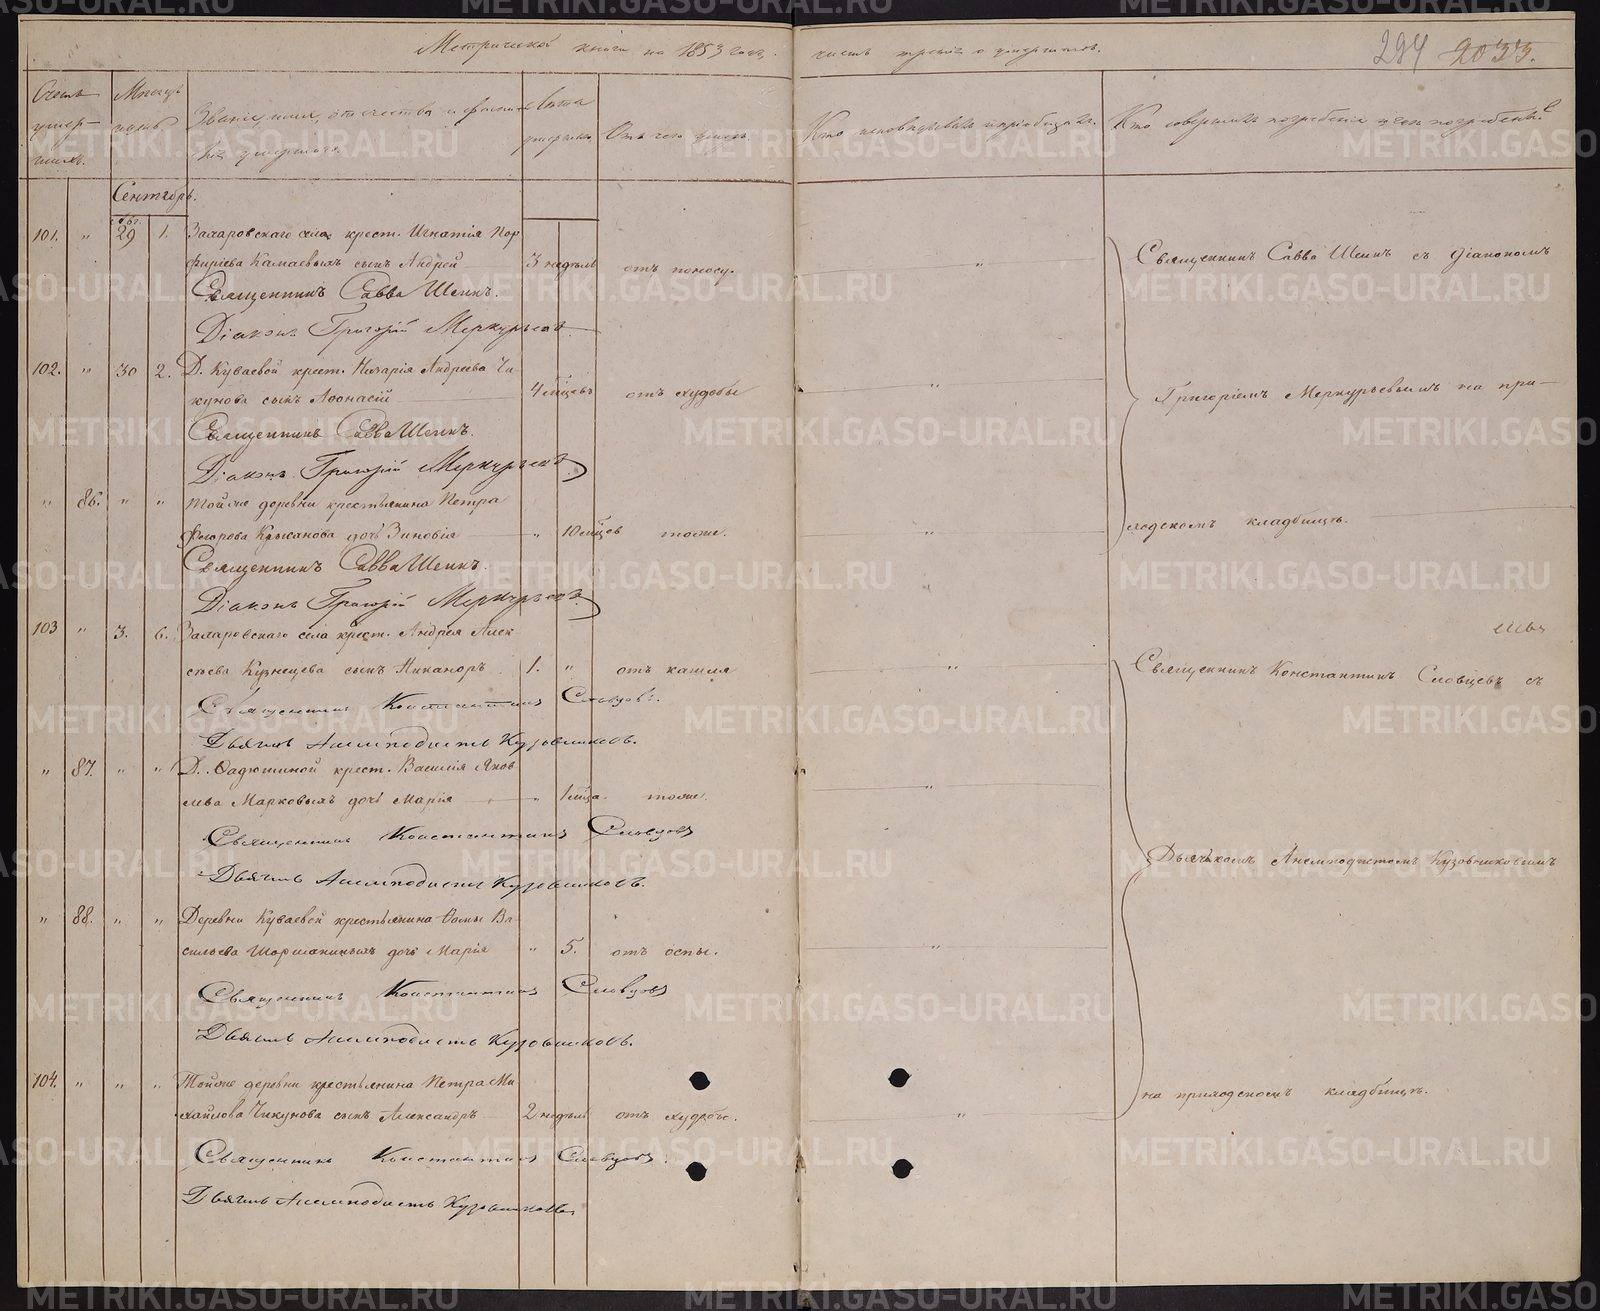 Метрической книги на 1853 годъ, часть третія о умершихъ.
294 2033.
Счетъ умер-шихъ.
Мѣсяцъ и день
Званіе, имя, отчество и фамилія умершаго.
Лѣта умершаго.
Отъ чего умеръ.
Кто исповѣдывалъ и пріобщалъ.
Кто совершалъ погребеніе и гдѣ погребены.
Сентябрь.
101. " 29 1. Захаровскаго села крест. Игнатія Пор-
фиріева Камаевыхъ сынъ Андрей 3 недѣль отъ поносу. "
Священникъ Савва Шеинъ.
Діаконъ Григорій Меркурьевъ
Священникъ Савва Шеинъ съ діакономъ
102. " 30 2. Д. Куваевой крест. Назарія Андреева Чи-
кунова сынъ Аѳонасій 4 мѣсцевъ отъ худобы "
Священникъ Савва Шеинъ.
Діаконъ Григорій Меркурьевъ
Григоріемъ Меркурьевымъ на при-
" 86. " " Тойже деревни крестьянина Петра
дочь Зиновія " 10 мѣсцев тоже. "
Священникъ Савва Шеинъ.
Діаконъ Григорій Меркурьевъ
ходскомъ кладбищѣ.
103 " 3. 6. Захаровскаго села крест. Андрея Алек-
сѣева Кузнецева сынъ Никаноръ 1. " отъ кашля "
Священникъ Константинъ Словцовъ.
Дьячекъ Анемподистъ Кузовниковъ.
Священникъ Константинъ Словцевъ съ
" 87. " " Д. Фадюшиной крест. Василія Яков-
лева Марковыхъ дочь Марія " 1 мѣца тоже. "
Священникъ Константинъ Словцовъ
Дьячекъ Анемподистъ Кузовниковъ.
Дьячкомъ Анемподистомъ Кузовниковымъ
" 88. " " Деревни Куваевой крестьянина Ѳомы Ва-
сильева дочь Марія " 5. отъ оспы. "
Священникъ Константинъ Словцовъ
Дьячекъ Анемподистъ Кузовниковъ.
104. " " " Тойже деревни крестьянина Петра Ми-
хайлова Чикунова сынъ Александръ 2 недѣль отъ худобы. "
на приходскомъ кладбищѣ.
Священникъ Константинъ Словцовъ.
Дьячекъ Анемподистъ Кузовниковъ
METRIKI.GASO-URAL.RU